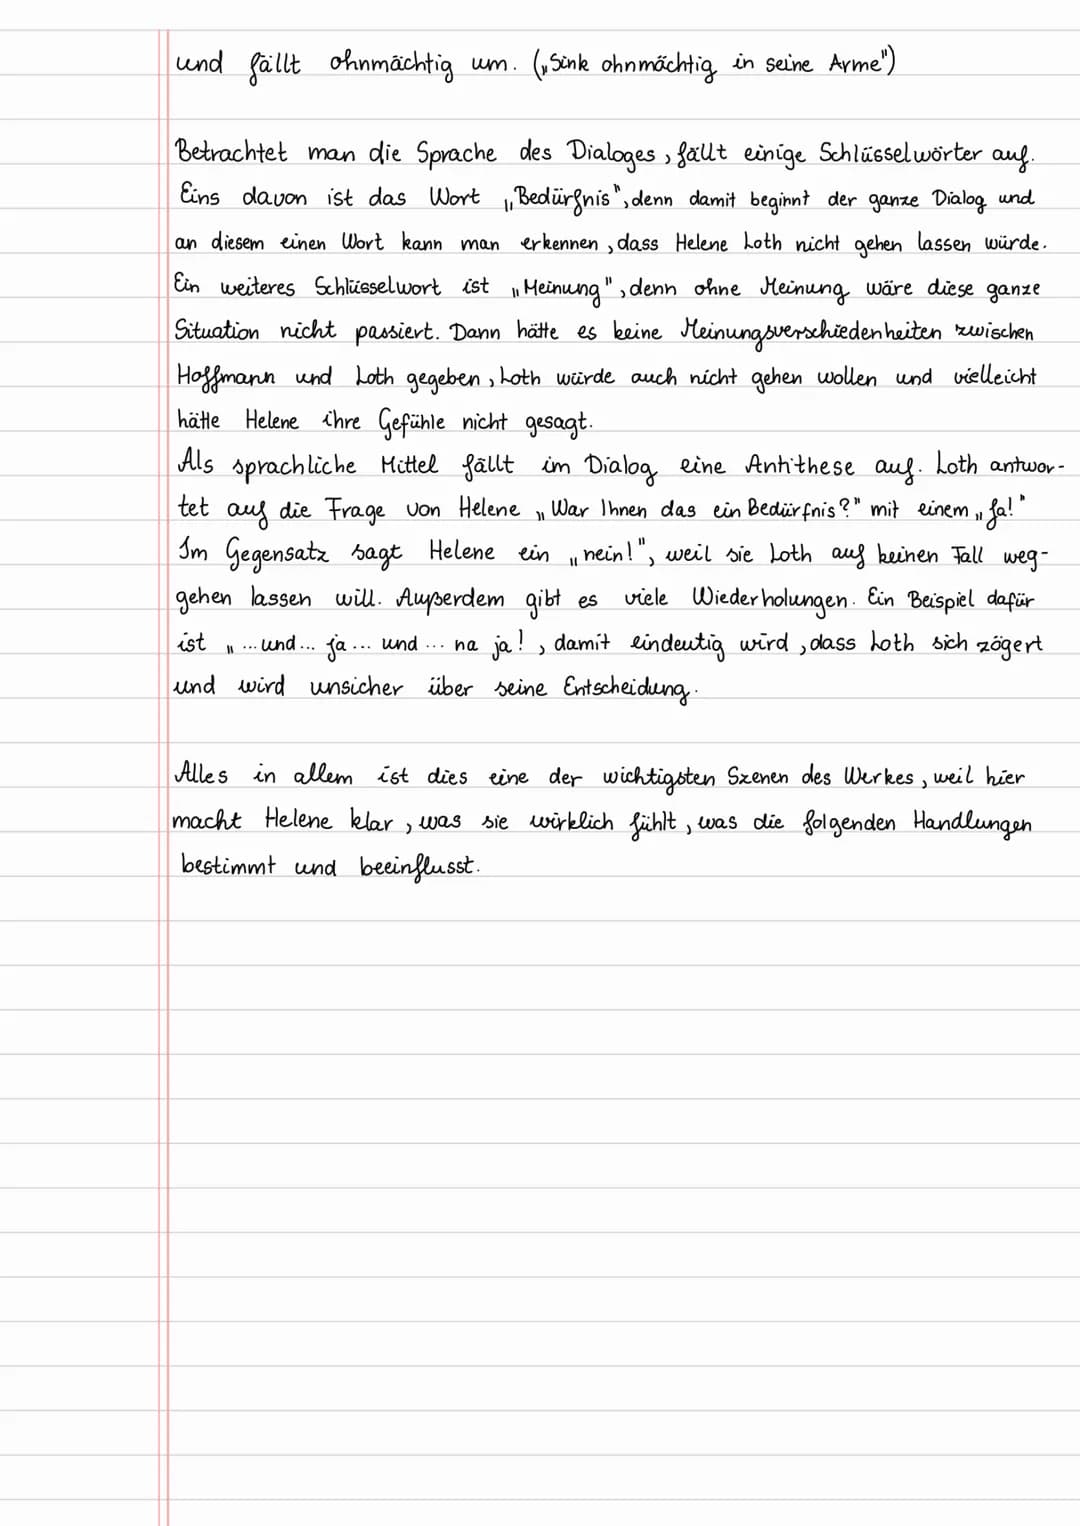 und fällt ohnmächtig um. („Sink ohnmächtig in seine Arme")
Betrachtet man die Sprache des Dialoges, fällt einige Schlüsselwörter auf.
Eins davon ist das Wort „Bedürfnis", denn damit beginnt der ganze Dialog und
an diesem einen Wort kann man erkennen, dass Helene Loth nicht gehen lassen würde.
Ein weiteres Schlüsselwort ist „Meinung", denn ohne Meinung wäre diese ganze
Situation nicht passiert. Dann hätte es keine Meinungsverschiedenheiten zwischen
Hoffmann und Loth gegeben, Loth würde auch nicht gehen wollen und vielleicht
hätte Helene ihre Gefühle nicht gesagt.
Als sprachliche Mittel fällt im Dialog eine Antithese auf. Loth antwor-
tet auf die Frage von Helene „War Ihnen das ein Bedürfnis?" mit einem „Ja!"
Im Gegensatz sagt Helene ein „nein!", weil sie Loth auf keinen Fall weg-
gehen lassen will. Außerdem gibt es viele Wiederholungen. Ein Beispiel dafür
ist „...und... ja... und... na ja!, damit eindeutig wird, dass Loth sich zögert
und wird unsicher über seine Entscheidung.
Alles in allem ist dies eine der wichtigsten Szenen des Werkes, weil hier
macht Helene klar, was sie wirklich fühlt, was die folgenden Handlungen
bestimmt und beeinflusst.